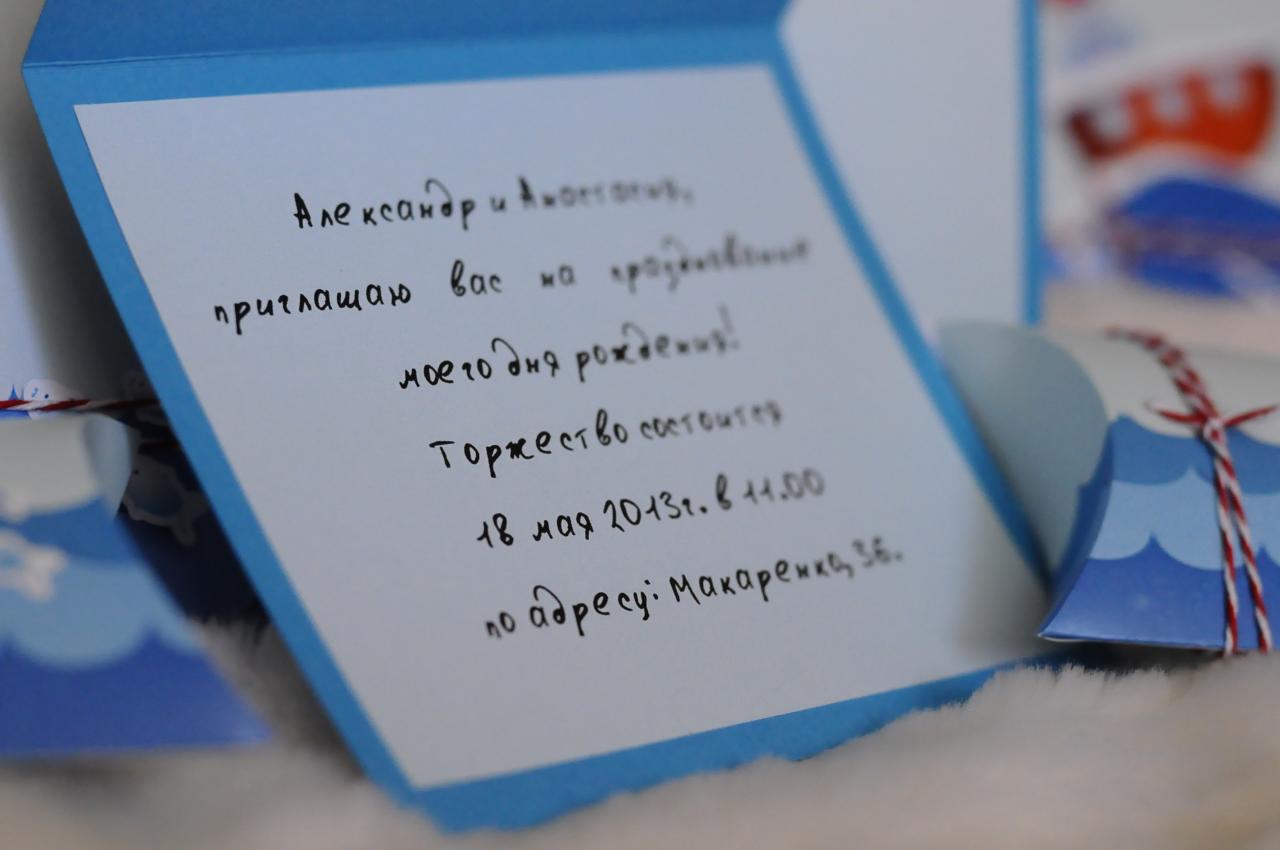 Александр и Анастасия,
приглашаю вас на празднование
моего дня рождения!
Торжество состоится
18 мая 2013г. в 11.00
по адресу: Макаренко, 36.